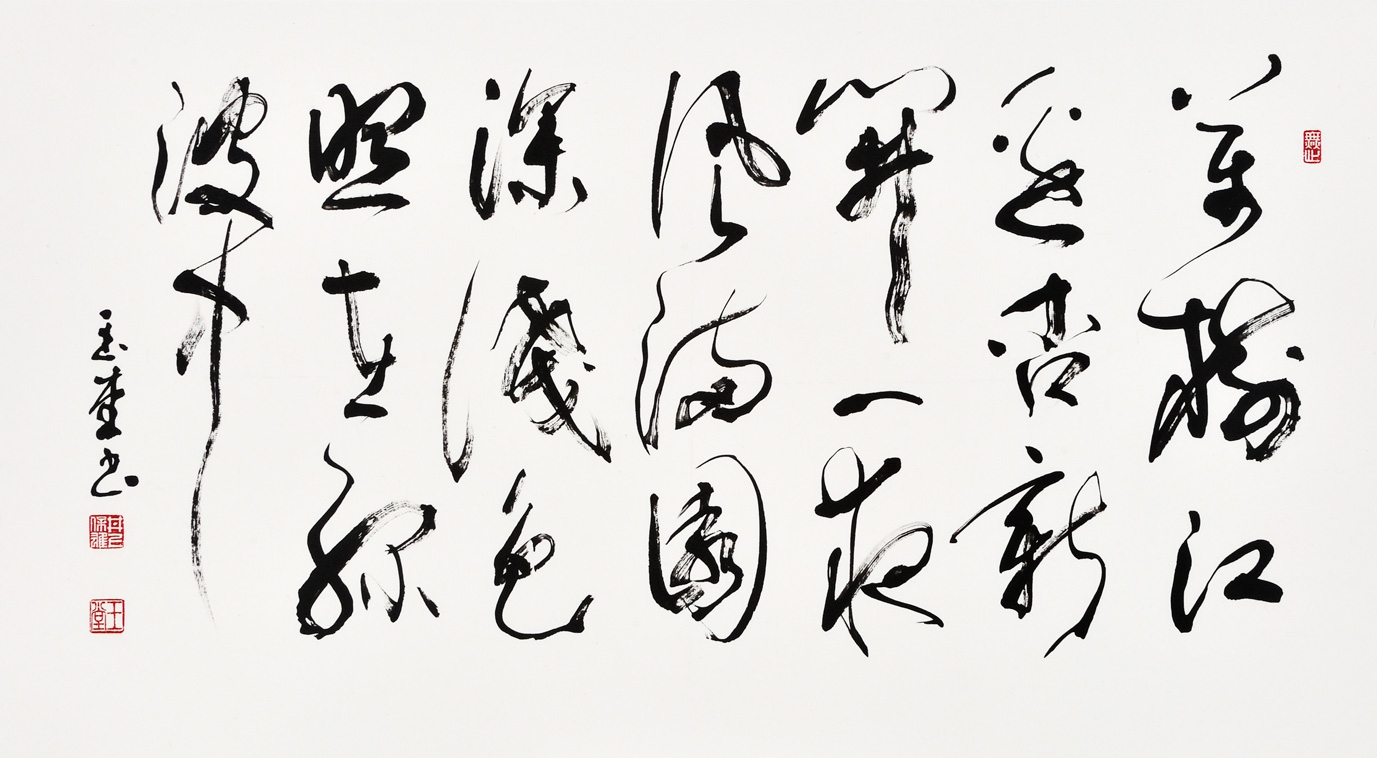 萬樹江
邊杏新
開一夜
風滿園
深淺色
照在綠
波中
玉堂書
玉堂